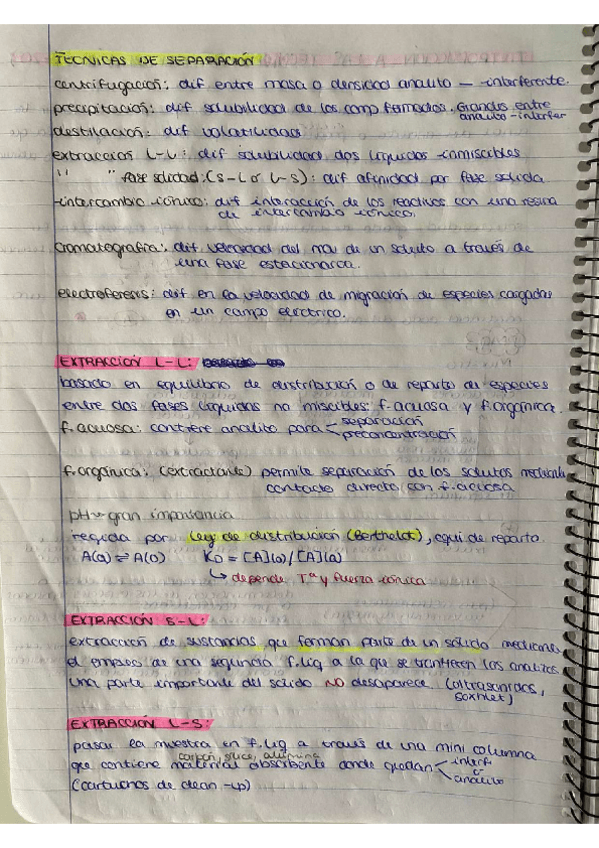 TECNICAS DE SEPARACIÓN
centrifugación: dif entre masa o densidad analito — interferente.
precipitación: dif solubilidad de los comp formados. Grandes entre
analito-interfer
destilación: dif volatilidad
extracción L-L: dif solubilidad dos líquidos inmiscibles
" " fase solida: (S-L o L-S): dif afinidad por fase solida
intercambio iónico: dif interacción de los reactivos con una resina
de intercambio iónico.
cromatografía: dif velocidad del mov de un soluto a través de
una fase estacionaria.
electroforesis: dif en la velocidad de migración de especies cargadas
en un campo electrico.
EXTRACCIÓN L-L:
basado en equilibrio de distribución o de reparto de especies
entre dos fases líquidas no miscibles: f.acuosa y f.orgánica.
f.acuosa: contiene analito para separación
preconcentración
f.orgánica: (extractante) permite separación de los solutos mediante
contacto directo con f.acuosa
pH = gran importancia
regida por ley de distribución (Berthelot), equi de reparto.
A(a) ⇌ A(o) KD = [A](o)/[A](a)
↳ depende Tª y fuerza iónica
EXTRACCIÓN S-L:
extracción de sustancias que forman parte de un sólido mediante
el empleo de una segunda f.liq a la que se tranfieren los analitos
una parte importante del sólido NO desaparece (ultrasonidos,
soxhlet)
EXTRACCIÓN L-S:
pasar la muestra en f.liq a través de una mini columna
carbón, silice, alúmina
que contiene material absorbente donde quedan interf
o
analito
(cartuchos de clean-up)